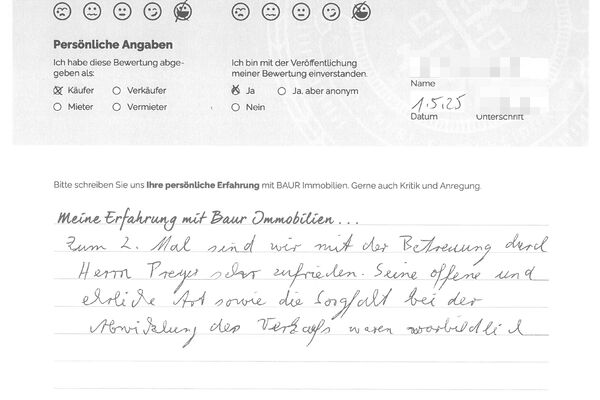 Persönliche Angaben
Ich habe diese Bewertung abge-
geben als:
Käufer Verkäufer
Mieter Vermieter
Ich bin mit der Veröffentlichung
meiner Bewertung einverstanden.
Ja Ja, aber anonym
Nein
Name
1.5.25
Datum Unterschrift
Bitte schreiben Sie uns Ihre persönliche Erfahrung mit BAUR Immobilien. Gerne auch Kritik und Anregung.
Meine Erfahrung mit Baur Immobilien...
Zum 2. Mal sind wir mit der Betreuung durch
Herrn Preyer sehr zufrieden. Seine offene und
ehrliche Art sowie die Sorgfalt bei der
Abwicklung des Verkaufs waren vorbildlich